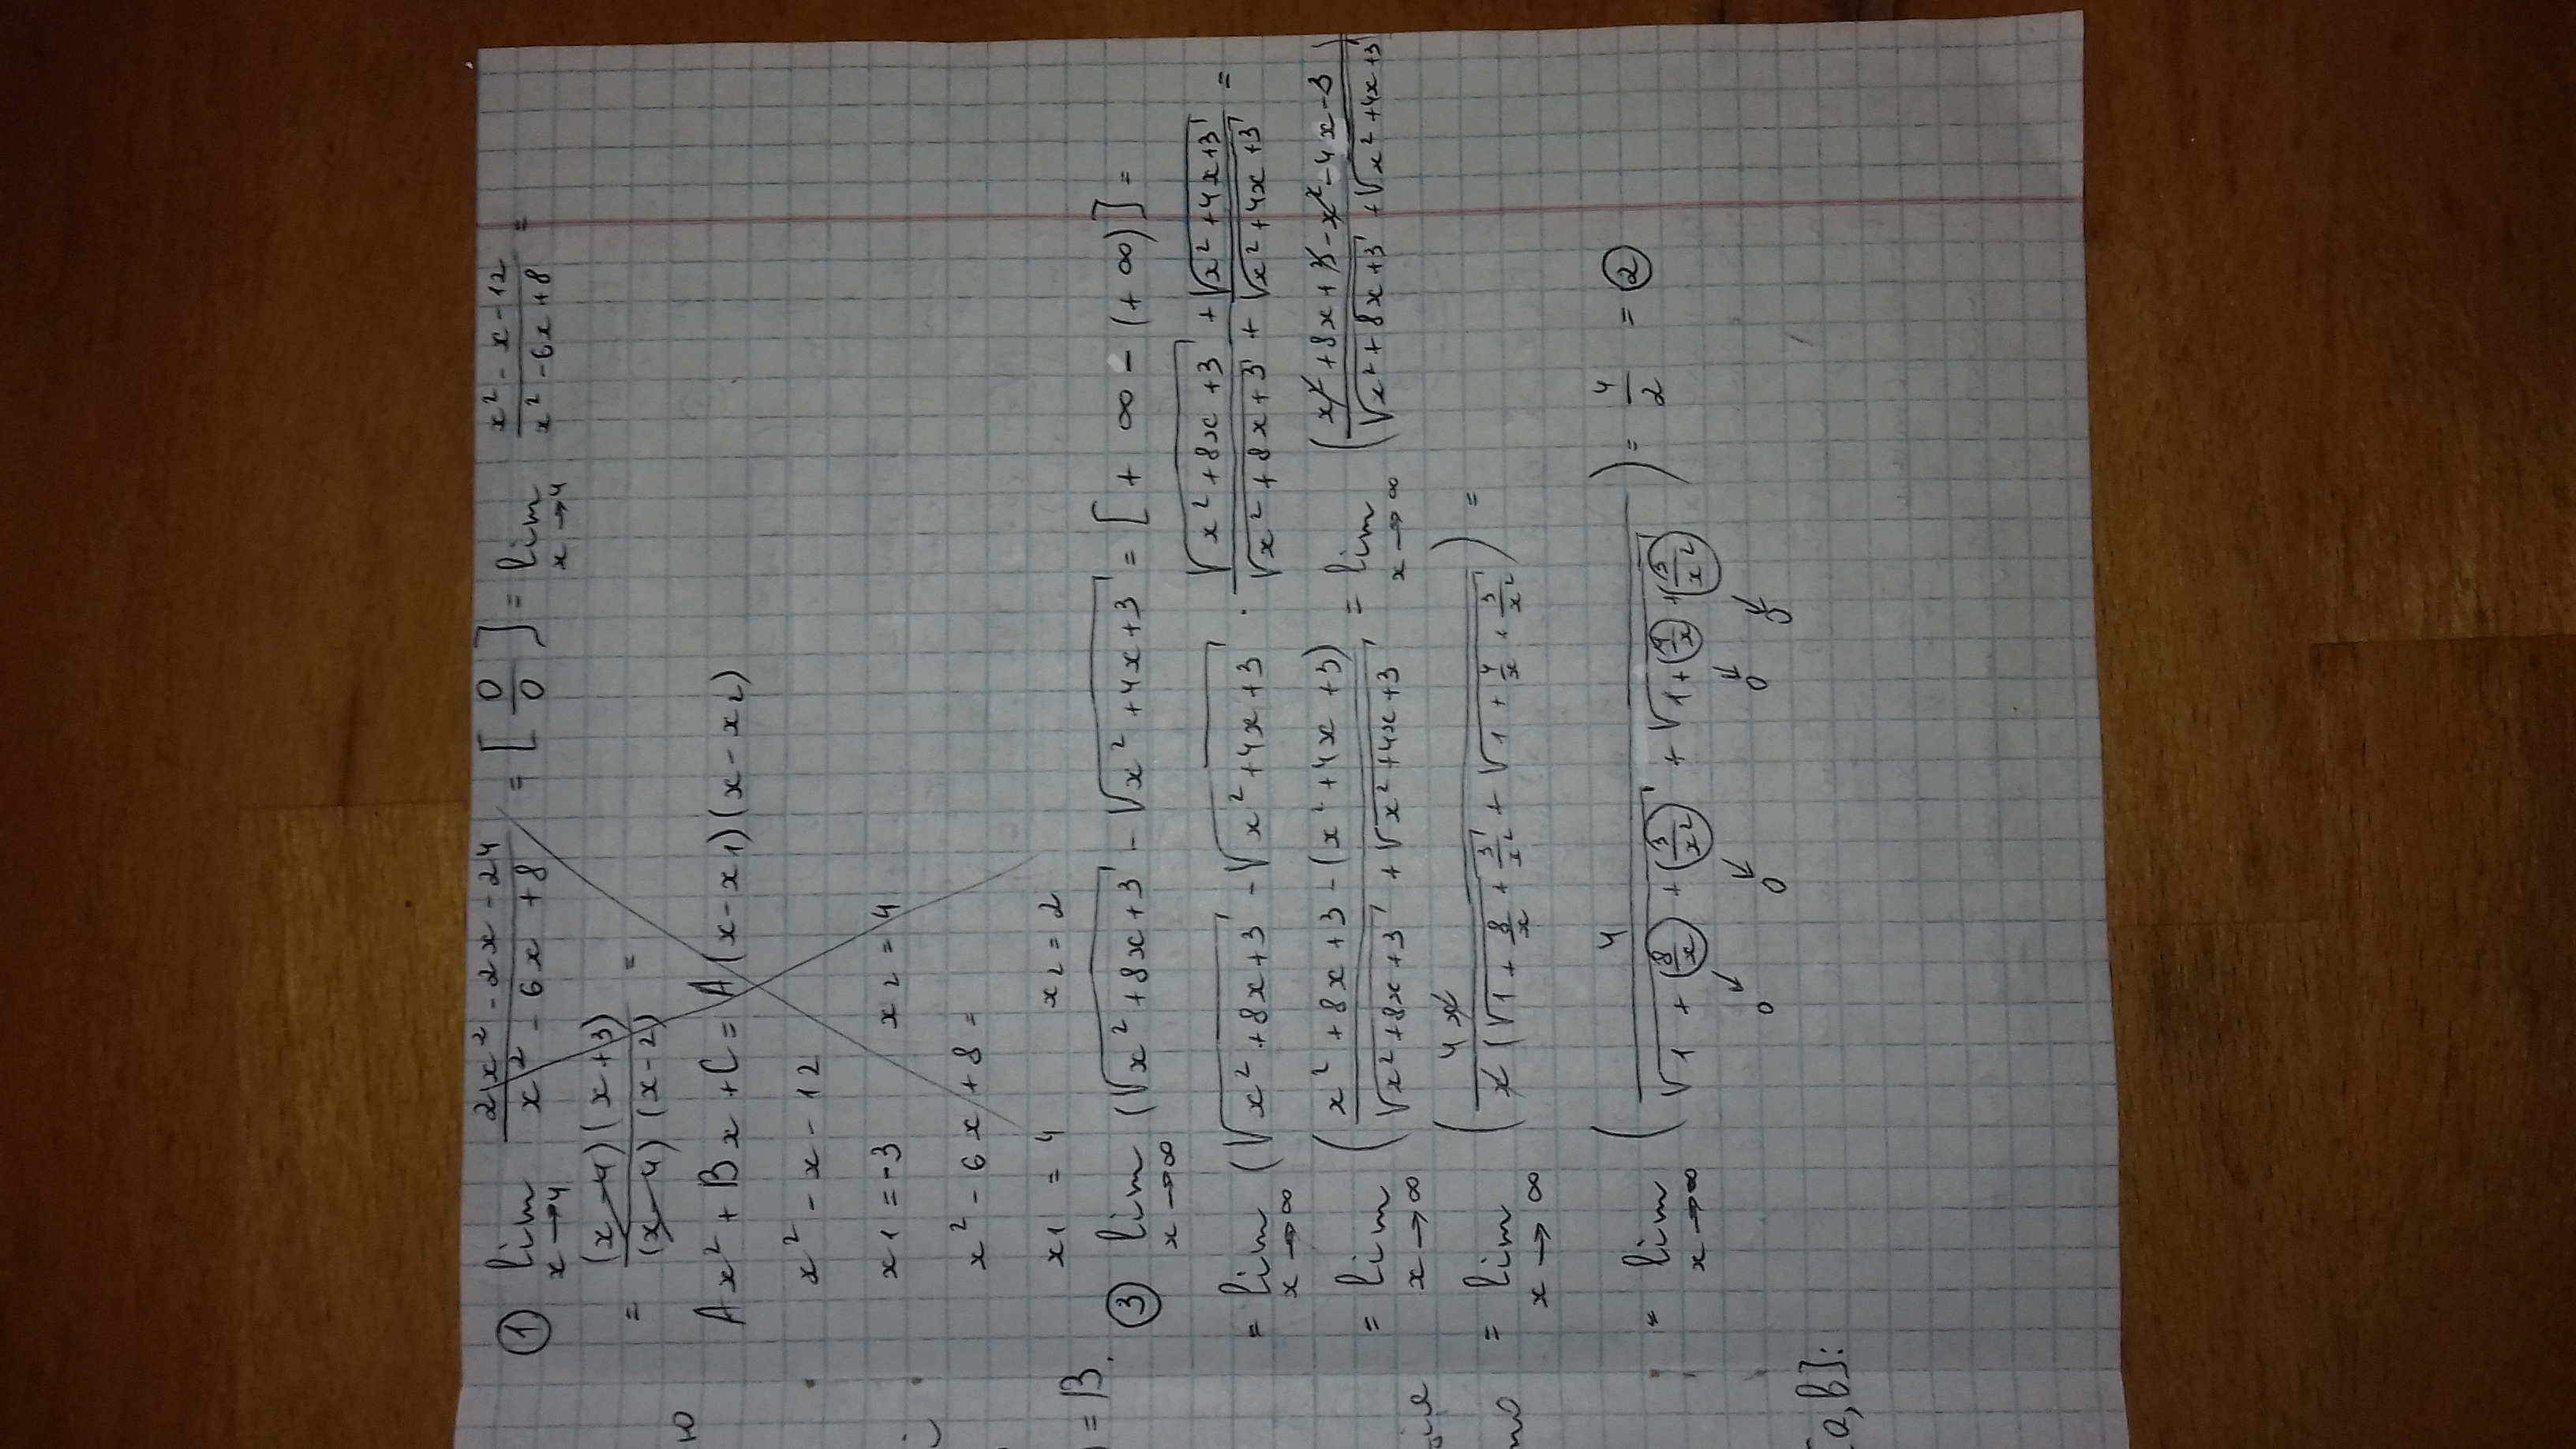 ① lim x→4 (2x² - 2x - 24)/(x² - 6x + 8) = [0/0] = lim x→4 (x² - x - 12)/(x² - 6x + 8) =
= ((x-4)(x+3))/((x-4)(x-2)) =
Ax² + Bx + C = A(x-x1)(x-x2)
x² - x - 12
x1 = -3 x2 = 4
x² - 6x + 8 =
x1 = 4 x2 = 2
= B.
③ lim x→∞ (√(x² + 8x + 3) - √(x² + 4x + 3) = [+∞ - (+∞)] =
= lim x→∞ (√(x² + 8x + 3) - √(x² + 4x + 3) · (√(x² + 8x + 3) + √(x² + 4x + 3))/(√(x² + 8x + 3) + √(x² + 4x + 3)) =
= lim x→∞ ((x² + 8x + 3 - (x² + 4x + 3))/(√(x² + 8x + 3) + √(x² + 4x + 3)) = lim x→∞ ((x² + 8x + 3 - x² - 4x - 3)/(√(x² + 8x + 3) + √(x² + 4x + 3)))
= lim x→∞ (4x/(x(√(1 + 8/x + 3/x²) + √(1 + 4/x + 3/x²))) =
= lim x→∞ (4/(√(1 + 8/x + 3/x²) + √(1 + 4/x + 3/x²))) = 4/2 = 2
0 0 0 0
[a,b]: